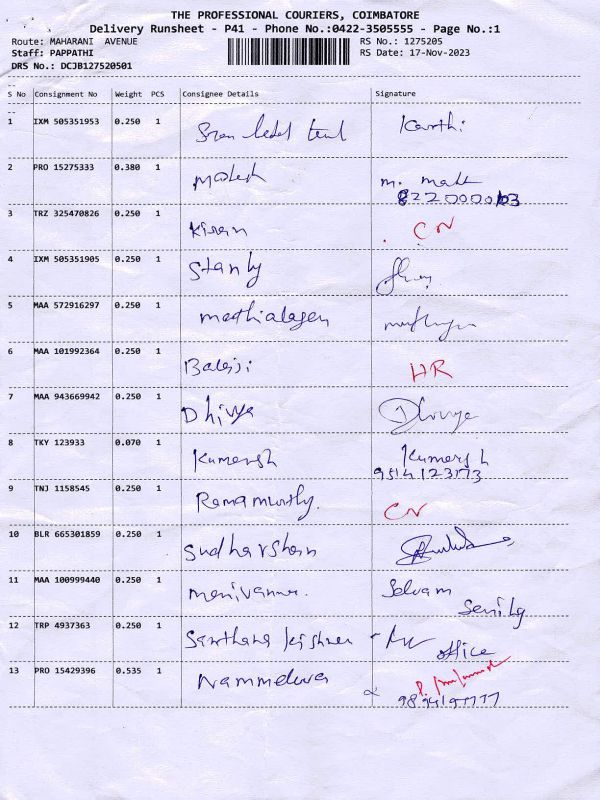 THE PROFESSIONAL COURIERS, COIMBATORE
Delivery Runsheet - P41 - Phone No.:0422-3505555 - Page No.:1
Route: MAHARANI AVENUE RS No.: 1275205
Staff: PAPPATHI RS Date: 17-Nov-2023
DRS No.: DCJB127520501
S No Consignment No Weight PCS Consignee Details Signature
1 IXM 505351953 0.250 1 Karthi
2 PRO 15275333 0.380 1 m.
3 TRZ 325470826 0.250 1 Kiran CN
4 IXM 505351905 0.250 1 Stanly
5 MAA 572916297 0.250 1 mathialagen
6 MAA 101992364 0.250 1 Balaji HR
7 MAA 943669942 0.250 1 Dhivya Dhivya
8 TKY 123933 0.070 1 Kumaresh Kumaresh
9514123173
9 TNJ 1158545 0.250 1 Ramamurthy. CN
10 BLR 665301859 0.250 1 Sudharshan
11 MAA 100999440 0.250 1 Selvam
12 TRP 4937363 0.250 1 office
13 PRO 15429396 0.535 1